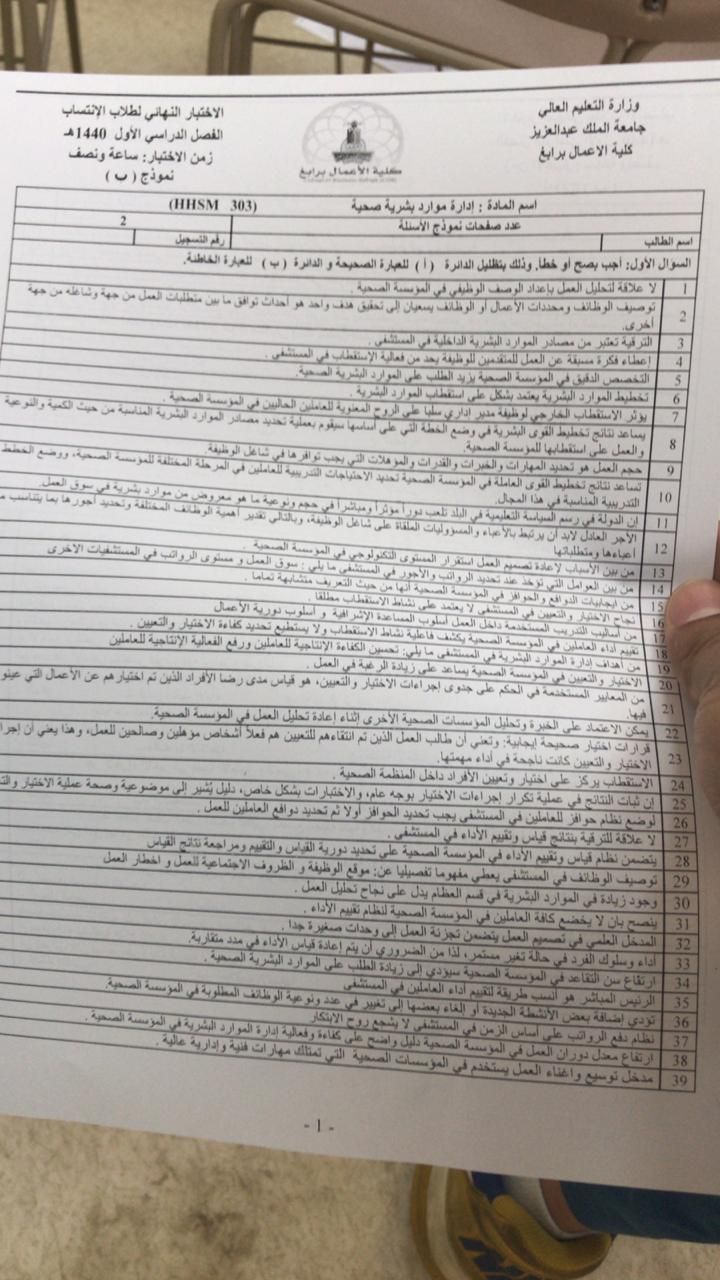 وزارة التعليم العالي
جامعة الملك عبدالعزيز
كلية الاعمال برابغ
كلية الأعمال برابغ
الاختبار النهائي لطلاب الإنتساب
الفصل الدراسي الأول 1440هـ
زمن الاختبار: ساعة ونصف
نموذج (ب)
اسم المادة : إدارة موارد بشرية صحية (HHSM 303)
عدد صفحات نموذج الأسئلة 2
اسم الطالب رقم التسجيل
السؤال الأول: أجب بصح أو خطأ. وذلك بتظليل الدائرة ( أ ) للعبارة الصحيحة و الدائرة ( ب ) للعبارة الخاطئة.
1 لا علاقة لتحليل العمل بإعداد الوصف الوظيفي في المؤسسة الصحية .
2 توصيف الوظائف ومحددات الأعمال أو الوظائف يسعيان إلى تحقيق هدف واحد هو أحداث توافق ما بين متطلبات العمل من جهة وشاغله من جهة
أخرى.
3 الترقية تعتبر من مصادر الموارد البشرية الداخلية في المستشفى .
4 إعطاء فكرة مسبقة عن العمل للمتقدمين للوظيفة يحد من فعالية الإستقطاب في المستشفى .
5 التخصص الدقيق في المؤسسة الصحية يزيد الطلب على الموارد البشرية الصحية.
6 تخطيط الموارد البشرية يعتمد بشكل على استقطاب الموارد البشرية .
7 يؤثر الاستقطاب الخارجي لوظيفة مدير إداري سلبا على الروح المعنوية للعاملين الحاليين في المؤسسة الصحية .
8 يساعد نتائج تخطيط القوى البشرية في وضع الخطة التي على أساسها سيقوم بعملية تحديد مصادر الموارد البشرية المناسبة من حيث الكمية والنوعية
والعمل على استقطابها للمؤسسة الصحية.
9 حجم العمل هو تحديد المهارات والخبرات والقدرات والمؤهلات التي يجب توافرها في شاغل الوظيفة.
10 تساعد نتائج تخطيط القوى العاملة في المؤسسة الصحية تحديد الاحتياجات التدريبية للعاملين في المرحلة المختلفة للمؤسسة الصحية، ووضع الخطط
التدريبية المناسبة في هذا المجال.
11 إن الدولة في رسم السياسة التعليمية في البلد تلعب دوراً مؤثراً ومباشراً في حجم ونوعية ما هو معروض من موارد بشرية في سوق العمل.
12 الأجر العادل لابد أن يرتبط بالأعباء والمسؤوليات الملقاة على شاغل الوظيفة، وبالتالي تقدير أهمية الوظائف المختلفة وتحديد أجورها بما يتناسب
أعباءها ومتطلباتها
13 من بين الأسباب لإعادة تصميم العمل استقرار المستوى التكنولوجي في المؤسسة الصحية .
14 من بين العوامل التي تؤخذ عند تحديد الرواتب والأجور في المستشفى ما يلي : سوق العمل و مستوى الرواتب في المستشفيات الاخرى
15 من ايجابيات الدوافع والحوافز في المؤسسة الصحية أنها من حيث التعريف متشابهة تماما .
16 نجاح الاختيار والتعيين في المستشفى لا يعتمد على نشاط الاستقطاب مطلقا .
17 من أساليب التدريب المستخدمة داخل العمل أسلوب المساعدة الإشرافية و أسلوب دورية الأعمال
18 تقييم أداء العاملين في المؤسسة الصحية يكشف فاعلية نشاط الاستقطاب ولا يستطيع تحديد كفاءة الاختيار والتعيين .
19 من أهداف إدارة الموارد البشرية في المستشفى ما يلي: تحسين الكفاءة الإنتاجية للعاملين ورفع الفعالية الإنتاجية للعاملين
20 الاختيار والتعيين في المؤسسة الصحية يساعد على زيادة الرغبة في العمل .
21 من المعايير المستخدمة في الحكم على جدوى إجراءات الاختيار والتعيين، هو قياس مدى رضا الأفراد الذين تم اختيارهم عن الأعمال التي
فيها.
22 يمكن الاعتماد على الخبرة وتحليل المؤسسات الصحية الأخرى إثناء إعادة تحليل العمل في المؤسسة الصحية.
23 قرارات اختيار صحيحة إيجابية: وتعني أن طالب العمل الذين تم انتقاءهم للتعيين هم فعلاً أشخاص مؤهلين وصالحين للعمل، وهذا يعني أن
الاختيار والتعيين كانت ناجحة في أداء مهمتها.
24 الاستقطاب يركز على اختيار وتعيين الأفراد داخل المنظمة الصحية .
25 إن ثبات النتائج في عملية تكرار إجراءات الاختيار بوجه عام، والاختبارات بشكل خاص، دليل يُشير إلى موضوعية وصحة عملية الاختيار
26 لوضع نظام حوافز للعاملين في المستشفى يجب تحديد الحوافز أولا ثم تحديد دوافع العاملين للعمل .
27 لا علاقة للترقية بنتائج قياس وتقييم الأداء في المستشفى .
28 يتضمن نظام قياس وتقييم الأداء في المؤسسة الصحية على تحديد دورية القياس والتقييم ومراجعة نتائج القياس
29 توصيف الوظائف في المستشفى يعطي مفهوما تفصيليا عن: موقع الوظيفة و الظروف الاجتماعية للعمل و اخطار العمل
30 وجود زيادة في الموارد البشرية في قسم العظام يدل على نجاح تحليل العمل .
31 ينصح بان لا يخضع كافة العاملين في المؤسسة الصحية لنظام تقييم الأداء .
32 المدخل العلمي في تصميم العمل يتضمن تجزئة العمل إلى وحدات صغيرة جدا .
33 أداء وسلوك الفرد في حالة تغير مستمر، لذا من الضروري أن يتم إعادة قياس الأداء في مدد متقاربة.
34 ارتفاع سن التقاعد في المؤسسة الصحية سيؤدي إلى زيادة الطلب على الموارد البشرية الصحية .
35 الرئيس المباشر هو أنسب طريقة لتقييم أداء العاملين في المستشفى
36 تؤدي إضافة بعض الأنشطة الجديدة أو إلغاء بعضها إلى تغيير في عدد ونوعية الوظائف المطلوبة في المؤسسة الصحية.
37 نظام دفع الرواتب على أساس الزمن في المستشفى لا يشجع روح الابتكار
38 ارتفاع معدل دوران العمل في المؤسسة الصحية دليل واضح على كفاءة وفعالية إدارة الموارد البشرية في المؤسسة الصحية .
39 مدخل توسيع واغناء العمل يستخدم في المؤسسات الصحية التي تمتلك مهارات فنية وإدارية عالية .
- 1 -